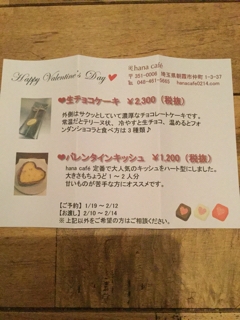 Happy Valentine's Day
hana café
〒351-0008 埼玉県朝霞市仲町 1-3-37
hanacafe0214.com
❤生チョコケーキ ¥2,300（税抜）
外側はサクッとしていて濃厚なチョコレートケーキです。
常温だとテリーヌ状、 冷やすと生チョコ、温めるとフォ
ンダンショコラと食べ方は3種類♪
❤バレンタインキッシュ ¥1,200（税抜）
hana cafe 定番で大人気のキッシュをハート型にしました。
大きさもちょうど1～2人分
甘いものが苦手な方にオススメです。
【ご予約】1/19 ～ 2/12
【お渡し】2/10 ～ 2/14
※上記以外をご希望の方はご相談ください。